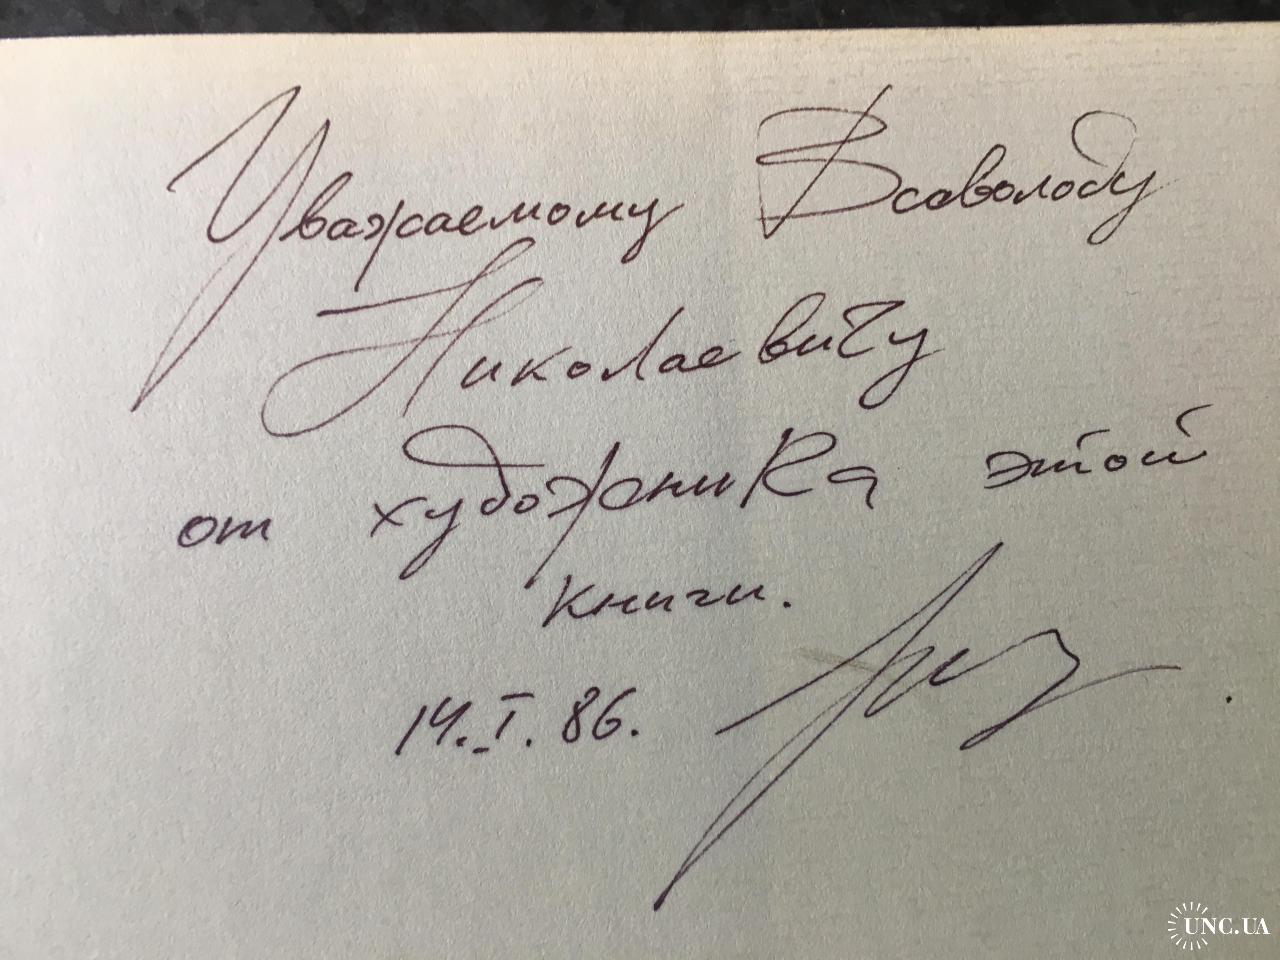 Уважаемому Всеволоду
Николаевичу
от художника этой
книги.
14.I.86.
UNC.UA